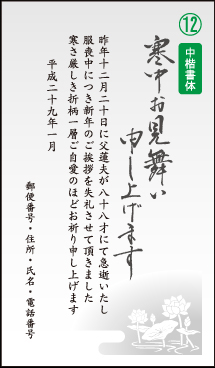 ⑫
中楷書体
寒中お見舞い
申し上げます
昨年十二月二十日に父蓮夫が八十八才にて急逝いたし
服喪中につき新年のご挨拶を失礼させて頂きました
寒さ厳しき折柄一層ご自愛のほどお祈り申し上げます
平成二十九年一月
郵便番号・住所・氏名・電話番号